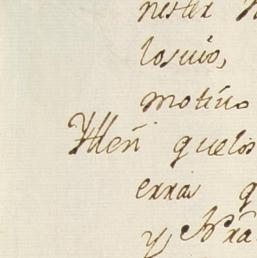 nester
losuio,
motiuo
Itteñ quelos
erra q
y Nra